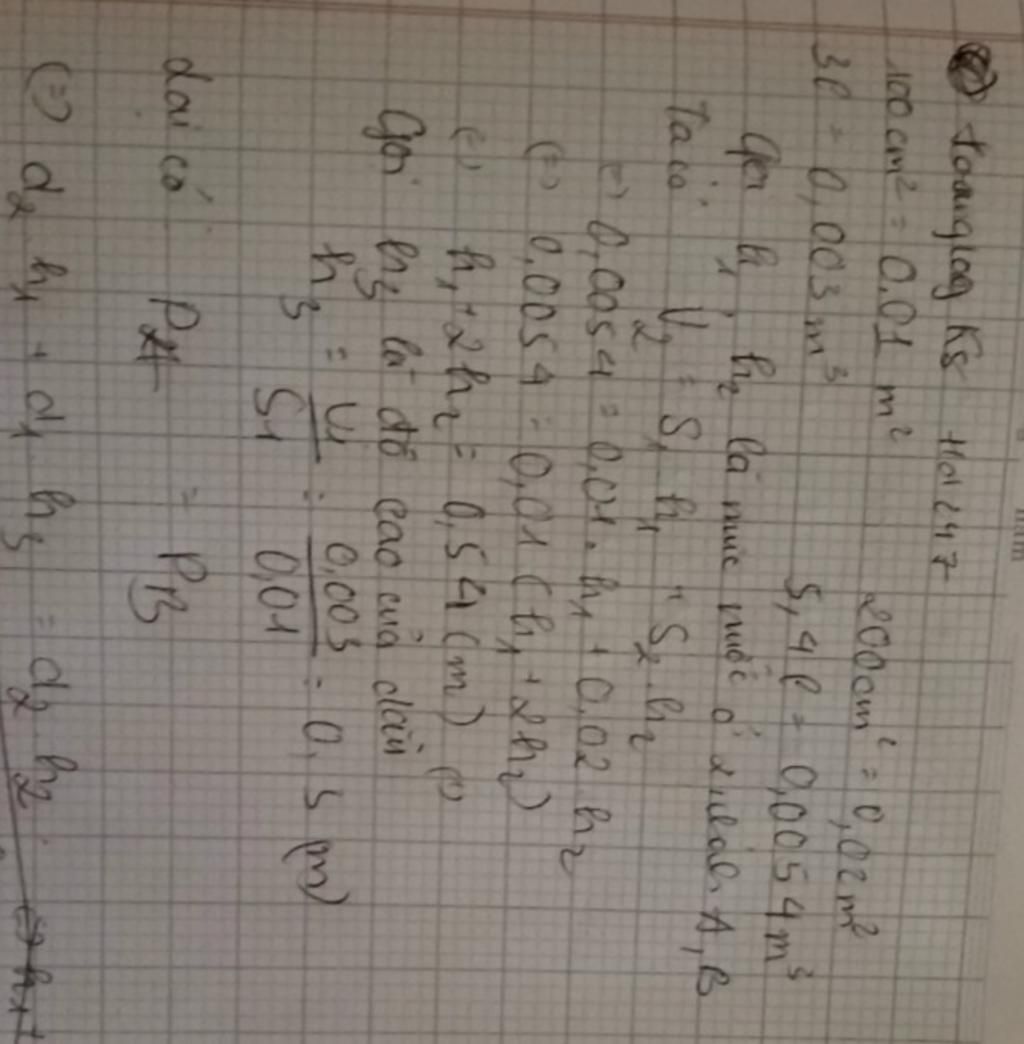 100cm² = 0,01 m² 200cm² = 0,02m²
3l = 0,003m³ 5,4l = 0,0054m³
Gọi h₁, h₂ là mực nước ở 2 nhánh A, B
Ta có: V₂ = S₁ h₁ + S₂ h₂
(=) 0,0054 = 0,01. h₁ + 0,02 h₂
(=) 0,0054 = 0,01 (h₁ + 2h₂)
(=) h₁ + 2h₂ = 0,54 (m) (1)
Gọi h₃ là độ cao của dầu
h₃ = V₁/S₁ = 0,003/0,01 = 0,3 (m)
lại có P_A = P_B
(=) d₂ h₁ + d₁ h₃ = d₂ h₂